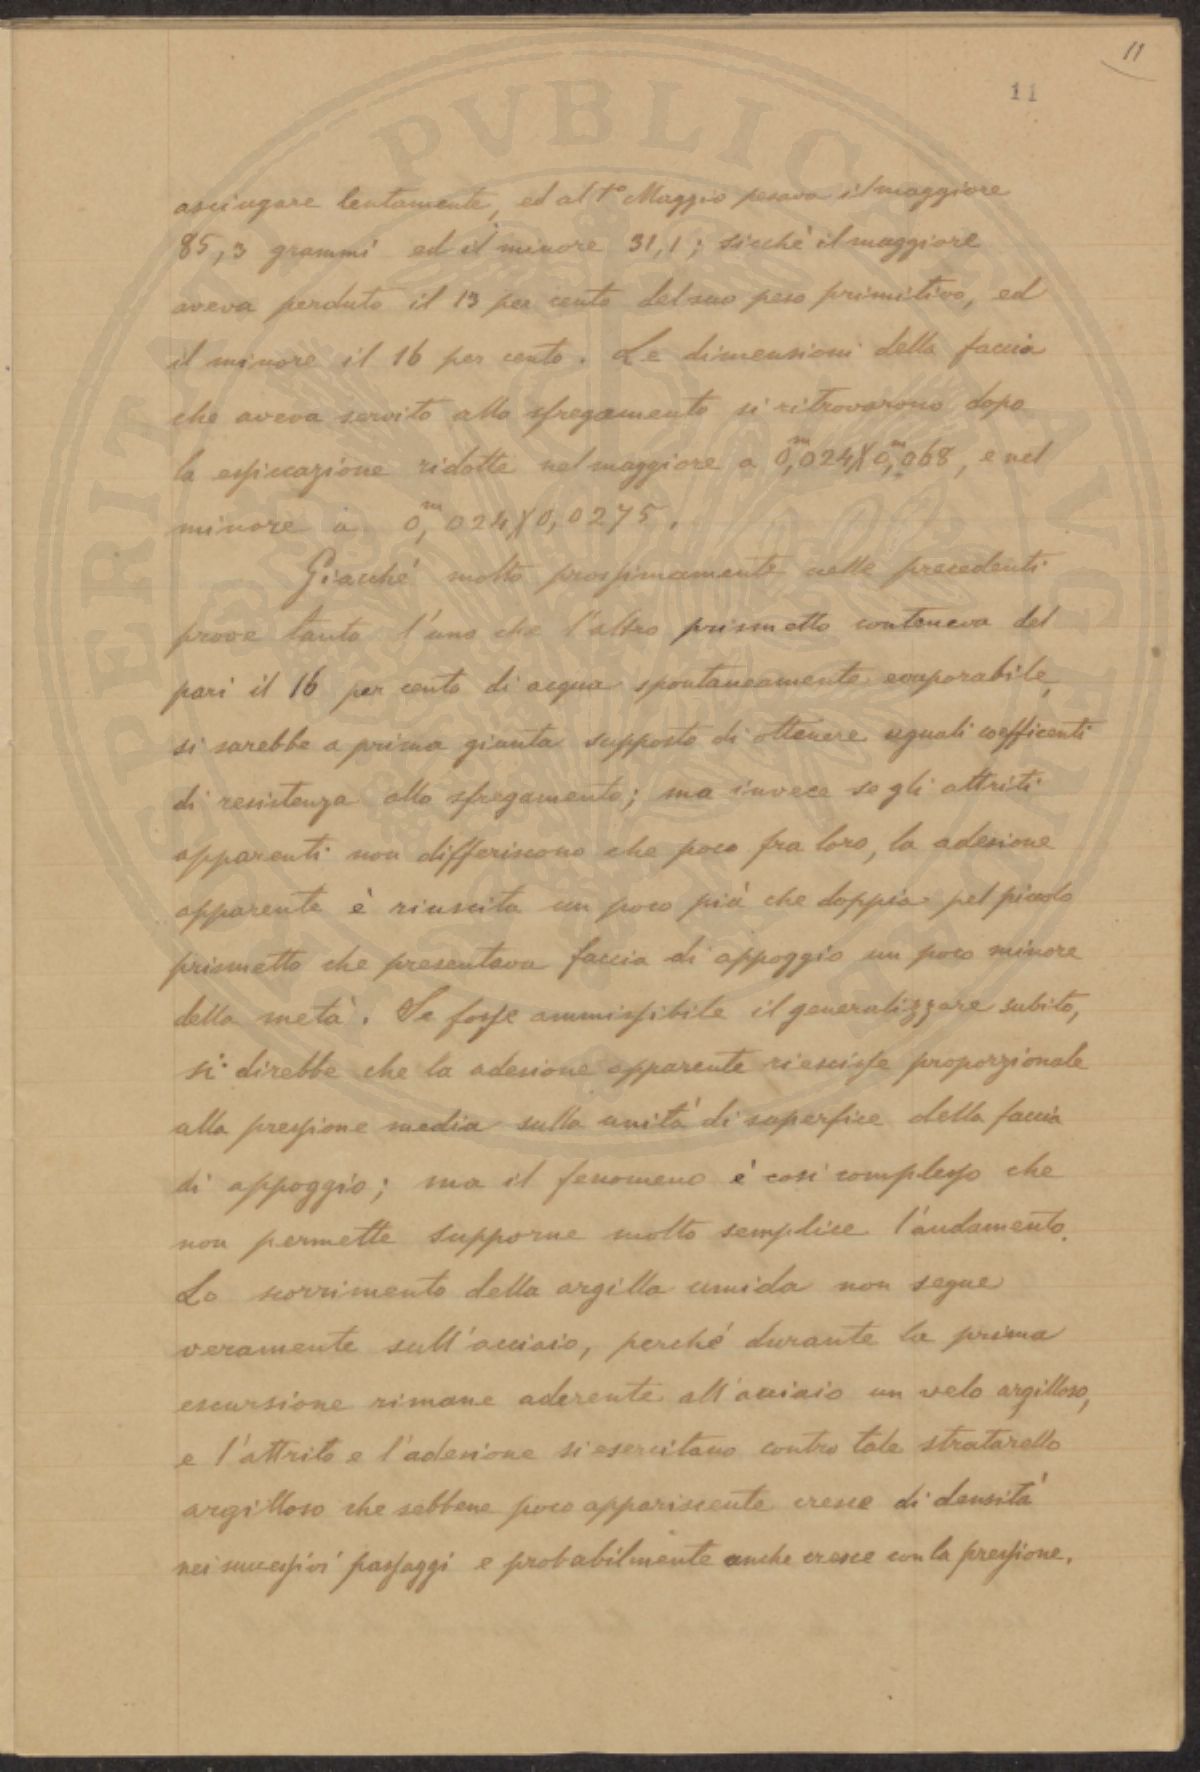 11
11
asciugare lentamente, ed al 1° Maggio pesava il maggiore
85,3 grammi ed il minore 31,1; sicchè il maggiore
aveva perduto il 13 per cento del suo peso primitivo, ed
il minore il 16 per cento. Le dimensioni della faccia
che aveva servito allo sfregamento si ritrovarono dopo
la essiccazione ridotte nel maggiore a 0,m024 X 0,m068, e nel
minore a 0,m024 X 0,0275.
Giacché molto prossimamente nelle precedenti
prove tanto l'uno che l'altro prismetto conteneva del
pari il 16 per cento di acqua spontaneamente evaporabile,
si sarebbe a prima giunta supposto di ottenere uguali coefficenti
di resistenza allo sfregamento; ma invece se gli attriti
apparenti non differiscono che poco fra loro, la adesione
apparente è riuscita un poco più che doppia pel piccolo
prismetto che presentava faccia di appoggio un poco minore
della metà. Se fosse ammissibile il generalizzare subito,
si direbbe che la adesione apparente riescisse proporzionale
alla pressione media sulla unità di superfice della faccia
di appoggio; ma il fenomeno è così complesso che
non permette supporne molto semplice l'andamento.
Lo scorrimento della argilla umida non segue
veramente sull'acciaio, perché durante la prima
escursione rimane aderente all'acciaio un velo argilloso,
e l'attrito e l'adesione si esercitano contro tale straterello
argilloso che sebbene poco appariscente cresce di densità
nei successivi passaggi e probabilmente anche cresce con la pressione.